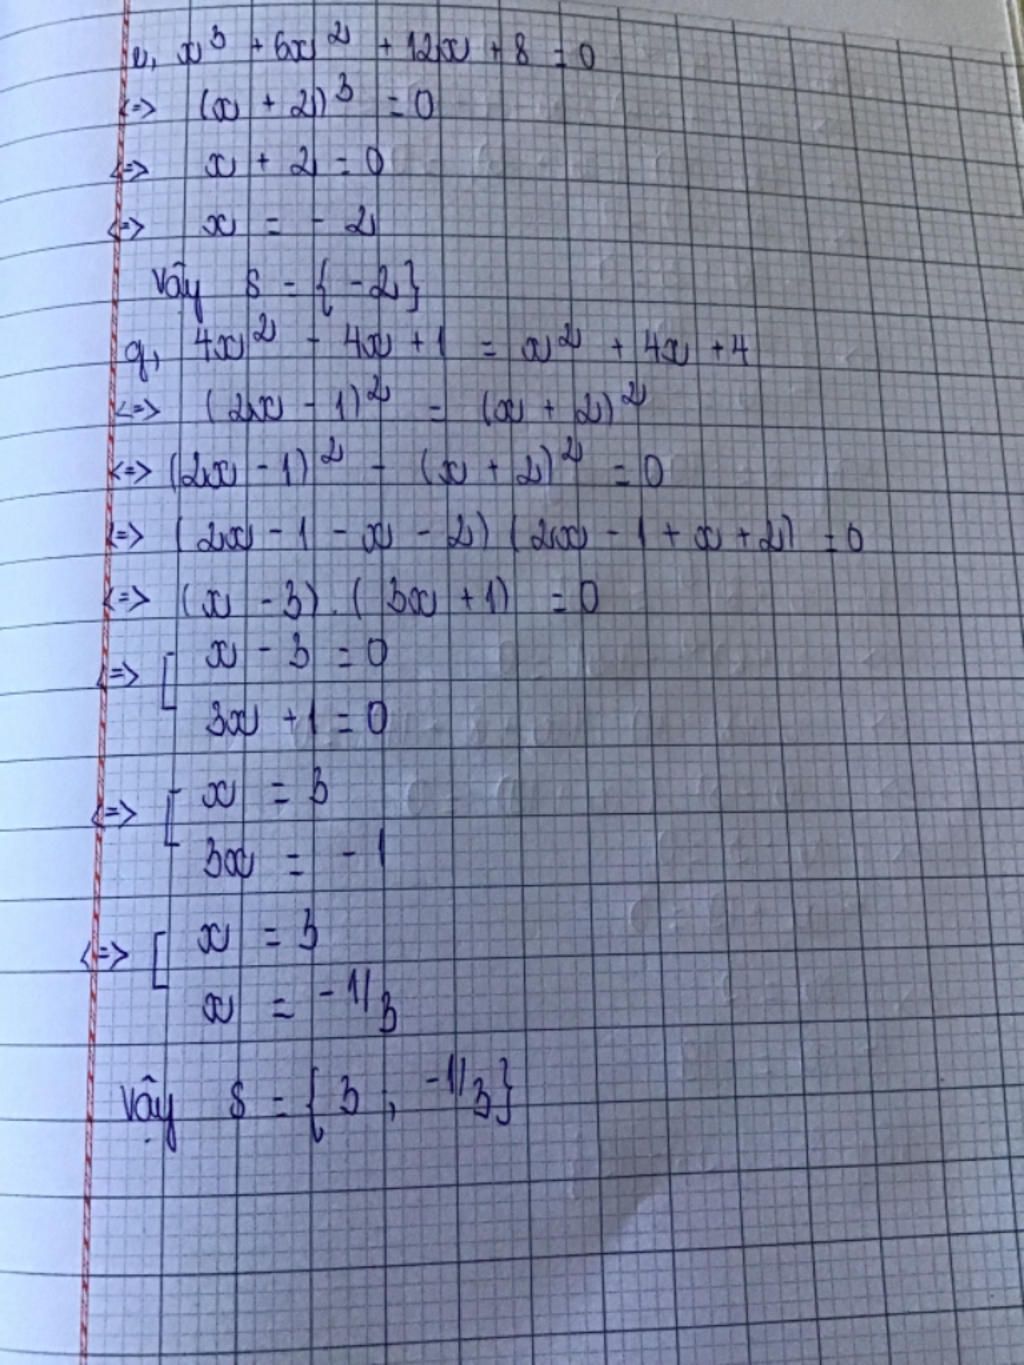 e, x³ + 6x² + 12x + 8 = 0
<=> (x + 2)³ = 0
<=> x + 2 = 0
<=> x = - 2
Vậy S = { -2 }
g, 4x² - 4x + 1 = x² + 4x + 4
<=> (2x - 1)² = (x + 2)²
<=> (2x - 1)² - (x + 2)² = 0
<=> (2x - 1 - x - 2) (2x - 1 + x + 2) = 0
<=> (x - 3) . (3x + 1) = 0
<=> [ x - 3 = 0
3x + 1 = 0
<=> [ x = 3
3x = - 1
<=> [ x = 3
x = - 1/3
Vậy S = { 3 ; -1/3 }